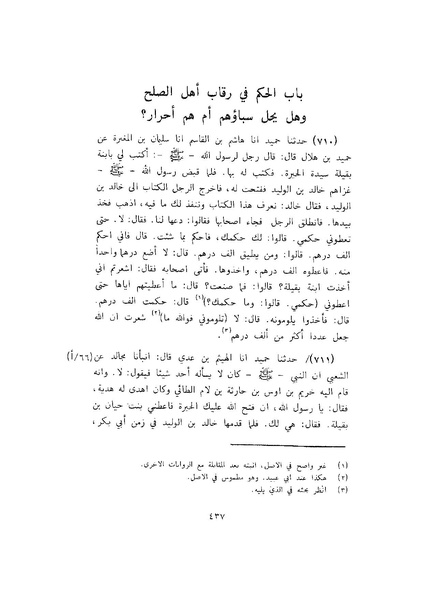 باب الحكم في رقاب أهل الصلح
وهل يحل سباؤهم أم هم أحرار؟
(٧١٠) حدثنا حميد انا هاشم بن القاسم انا سليمان بن المغيرة عن
حميد بن هلال قال: قال رجل لرسول الله - ﷺ -: أكتب لي بابنة
بقيلة سيدة الحيرة. فكتب له بها. فلما قبض رسول الله - ﷺ -
غزاهم خالد بن الوليد ففتحت له، فاخرج الرجل الكتاب الى خالد بن
الوليد، فقال خالد: نعرف هذا الكتاب وننفذ لك ما فيه، اذهب فخذ
بيدها. فانطلق الرجل فجاء اصحابها فقالوا: دعها لنا. قال: لا. حتى
تعطوني حكمي. قالوا: لك حكمك، فاحكم بما شئت. قال فاني احكم
الف درهم. قالوا: ومن يطيق الف درهم. قال: لا أضع درهما واحداً
منه. فاعطوه الف درهم، واخذوها. فأتى اصحابه فقال: اشعرتم اني
أخذت ابنة بقيلة؟ قالوا: فما صنعت؟ قال: ما أعطيتهم اياها حتى
اعطوني (حكمي. قالوا: وما حكمك؟)(١) قال: حكمت الف درهم.
قال: فأخذوا يلومونه. قال: لا (تلوموني فوالله ما)(٢) شعرت ان الله
جعل عددا أكثر من ألف درهم(٣).
(٧١١)/ حدثنا حميد انا الهيثم بن عدي قال: انبأنا مجالد عن (٦٦/أ)
الشعبي ان النبي - ﷺ - كان لا يسأله أحد شيئا فيقول: لا. وانه
قام اليه خريم بن اوس بن حارثة بن لام الطائي وكان اهدى له هدية،
فقال: يا رسول الله، ان فتح الله عليك الحيرة فاعطني بنت حيان بن
بقيلة. فقال: هي لك. فلما قدمها خالد بن الوليد في زمن أبي بكر،
(١) غير واضح في الاصل، اثبته بعد المقابلة مع الروايات الاخرى.
(٢) هكذا عند ابي عبيد. وهو مطموس في الاصل.
(٣) انظر بحثه في الذي يليه.
٤٣٧